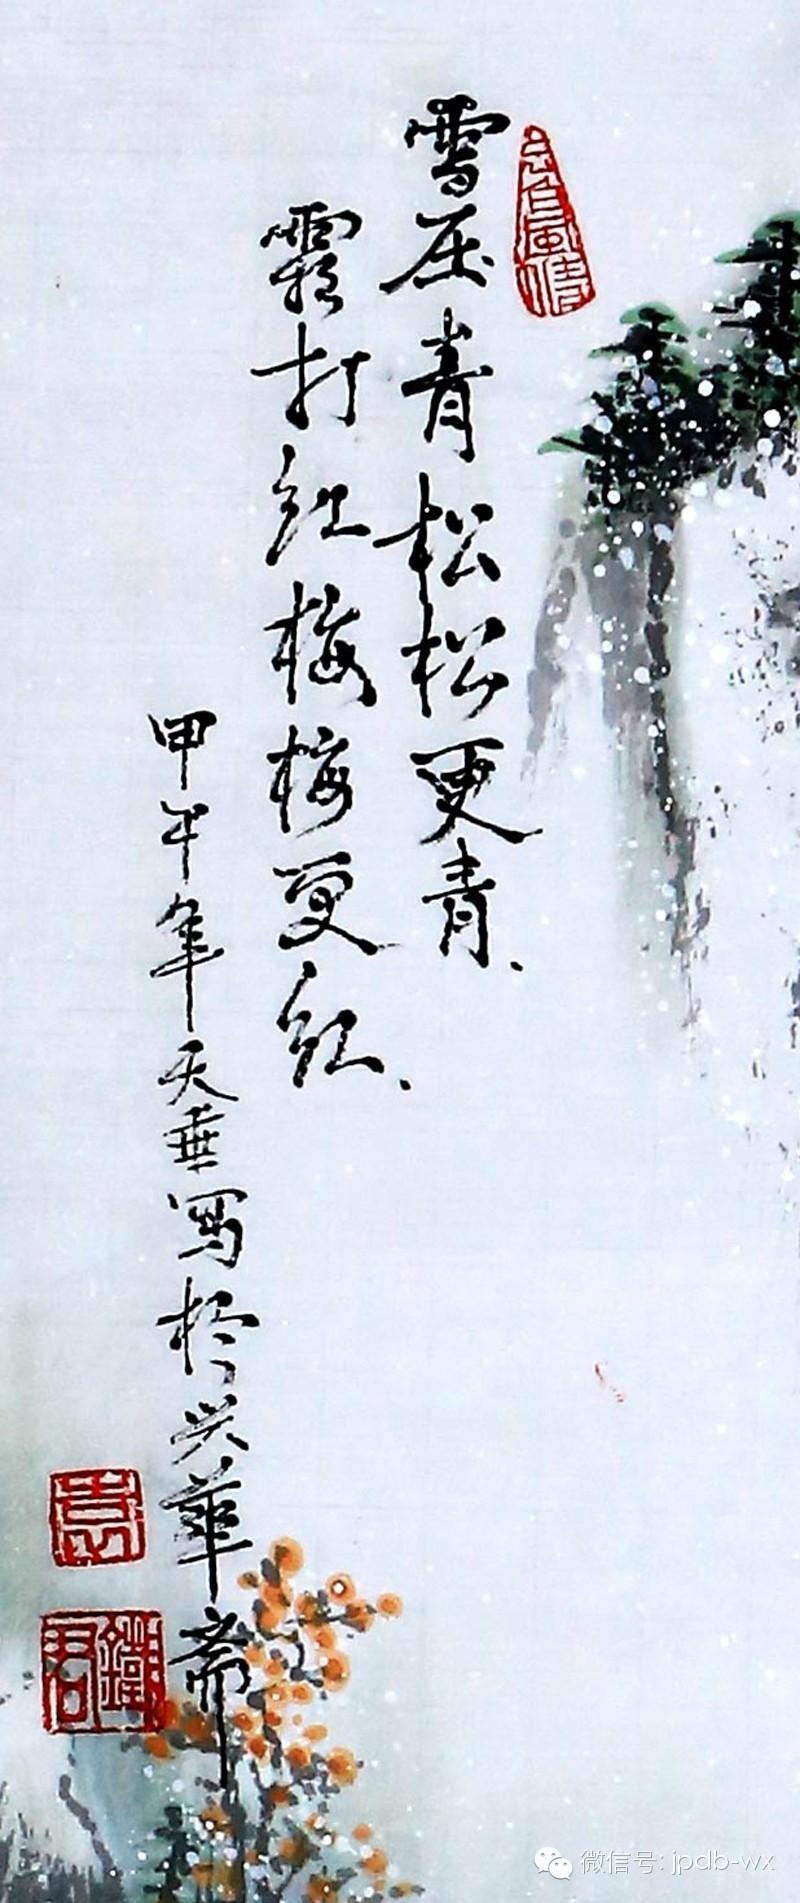 雪压青松松更青、
霜打红梅梅更红、
甲午年天垂写於兴华斋
微信号: jpdb-wx